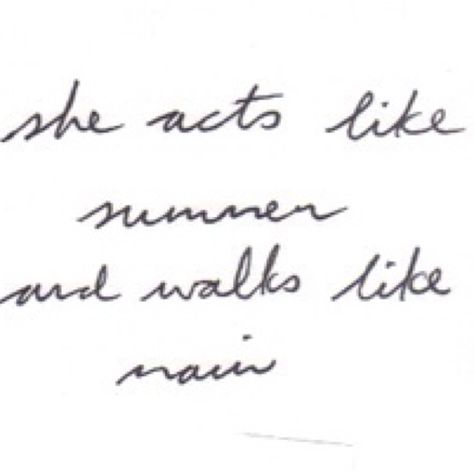 she acts like
summer
and walks like
rain